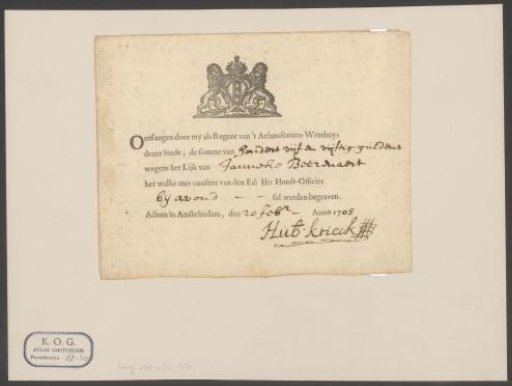 Ontfangen door my als Regent van 't Aelmoseniers-Weeshuys
dezer Stede, de somme van Hondert vijf en vijftig guldens
wegens het Lijk van Janneke
het welke met consent van den Ed: Hr: Hooft-Officier
by avond - - sal werden begraven.
Actum in Amsteldam, den 20 febr. Anno 1708
K. O. G.
ATLAS AMSTERDAM
Portefeuille